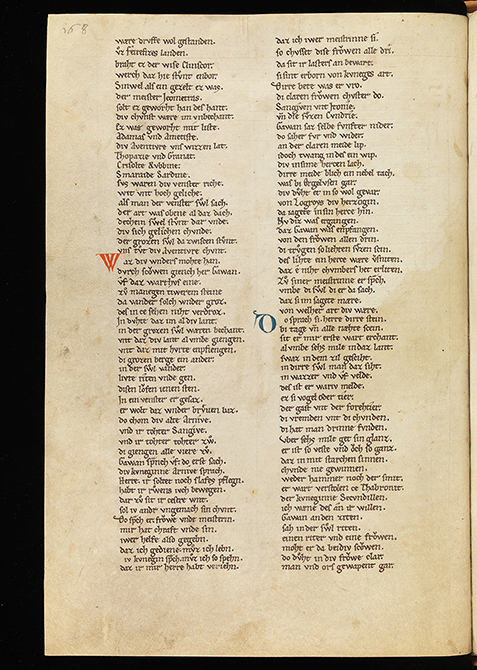 ware drvffe wol gestanden.
vz Feirefizes landen.
braht ez der wise Clinscor.
werch daz hie stvnt enbor.
Sinwel als ein gezelt ez was.
der meister Jeometras.
solt ez geworht han des hant.
div chvnst ware im vnbechant.
Ez was geworht mit liste.
Adamas vnd Ametiste.
div Aventivre vns wizzen lat.
Thopazie vnd Granat.
Crisolte Rvbbine.
Smaraide Sardine.
svs waren div venster riche.
wit vnt hoch geliche.
als man der venster svl sach.
der art was obene al daz dach.
dechein swel stvnt dar vnde.
div sich gelichen chvnde.
der grozen svl da zwisen stvnt.
vns tvt div Aventivre chvnt.
Waz div wnders mohte han.
dvrch scowen giench her Gawan.
vf daz warthvs eine.
zv manegen tiweren steine
da vander solch wnder groz.
des in ze sehen niht verdroz.
In dvhte daz im al div lant.
in der grozen svl waren bechant.
vnt daz div lant al vmbe giengen.
vnt daz mit hvrte enpfiengen.
di grozen berge ein ander.
in der svl vander.
livte riten vnde gen.
disen lofen ienen sten.
In ein venster er gesaz.
er wolt daz wnder brvuen baz.
do chom div alte Arnive.
vnd ir tohter Sangive.
vnd ir tohter tohter zwo.
di giengen alle viere zv.
Gawan sprach vf do erz sach.
div kvneginne Arnive sprach.
Herre ir soltet noch slafes pflegn.
habt ir rvwens iuch bewegen.
dar zv sit ir ze sere wnt.
sol iv andr vngemach sin chvnt.
Do spch er frowe vnde meisterin.
mir hat chraft vnde sin.
iwer helfe also gegebn.
daz ich gediene mvz ich lebn.
iv kvnegin spch mvz ich so spehn.
daz ir mir herre habt veriehn.
daz ich iwer meistrinne si.
so chvsset dise frowen alle dri.
da sit ir lasters an beware.
si sint erborn von kvneges art.
Dirre bete was er vro.
di claren frowen chvster do.
Sangiven vnt Jtonie.
vn die svzen Cvndrie.
Gawan saz selbe fvnfter nider.
do saher fvr vnd wider.
an der claren meide lip.
iedoch twang in des ein wip.
div in sime herzen lach.
dirre meide blich ein nebel tach.
was bi Orgelvsen gar.
div dvht et in so wol gevar.
von Logroys div herzogin.
da iagete in sin herze hin.
Nv diz was ergangen.
daz Gawan was enpfangen.
von den frowen allen drin.
di trvgen so liehten svzen sein.
des lihte ein herze ware versniten.
daz e niht chvmbers het erliten.
Zv siner meistrinne er spch.
vmbe di svl di er da sach.
daz si im sagete mare.
von welher art div ware.
Do sprach si herre dirre stein.
bi tage vn alle nahte schein.
sit er mir erste wart erchant.
al vmbe sehs mile in daz lant.
swaz in dem zil geschiht.
in dirre svl man daz siht.
in wazzer vnd vf velde.
des ist er wariv melde.
ez si vogel oder tier.
der gast vnt der forehtier.
di vremden vnt di chvnden.
di hat man drinne fvnden.
Vber sehs mile get sin glanz.
er ist so veste vnd och so ganz.
daz in mit starchen sinnen.
chvnde nie gewinnen.
weder hammer noch der smit.
er wart verstolen ze Thabronit.
der kvneginne Secvndillen.
ich wane des an ir willen.
Gawan an den ziten.
sah in der svl riten.
einen riter vnd eine frowen.
moht er da beidiv scowen.
do dvht in div frowe clar.
man vnd ors gewapent gar.